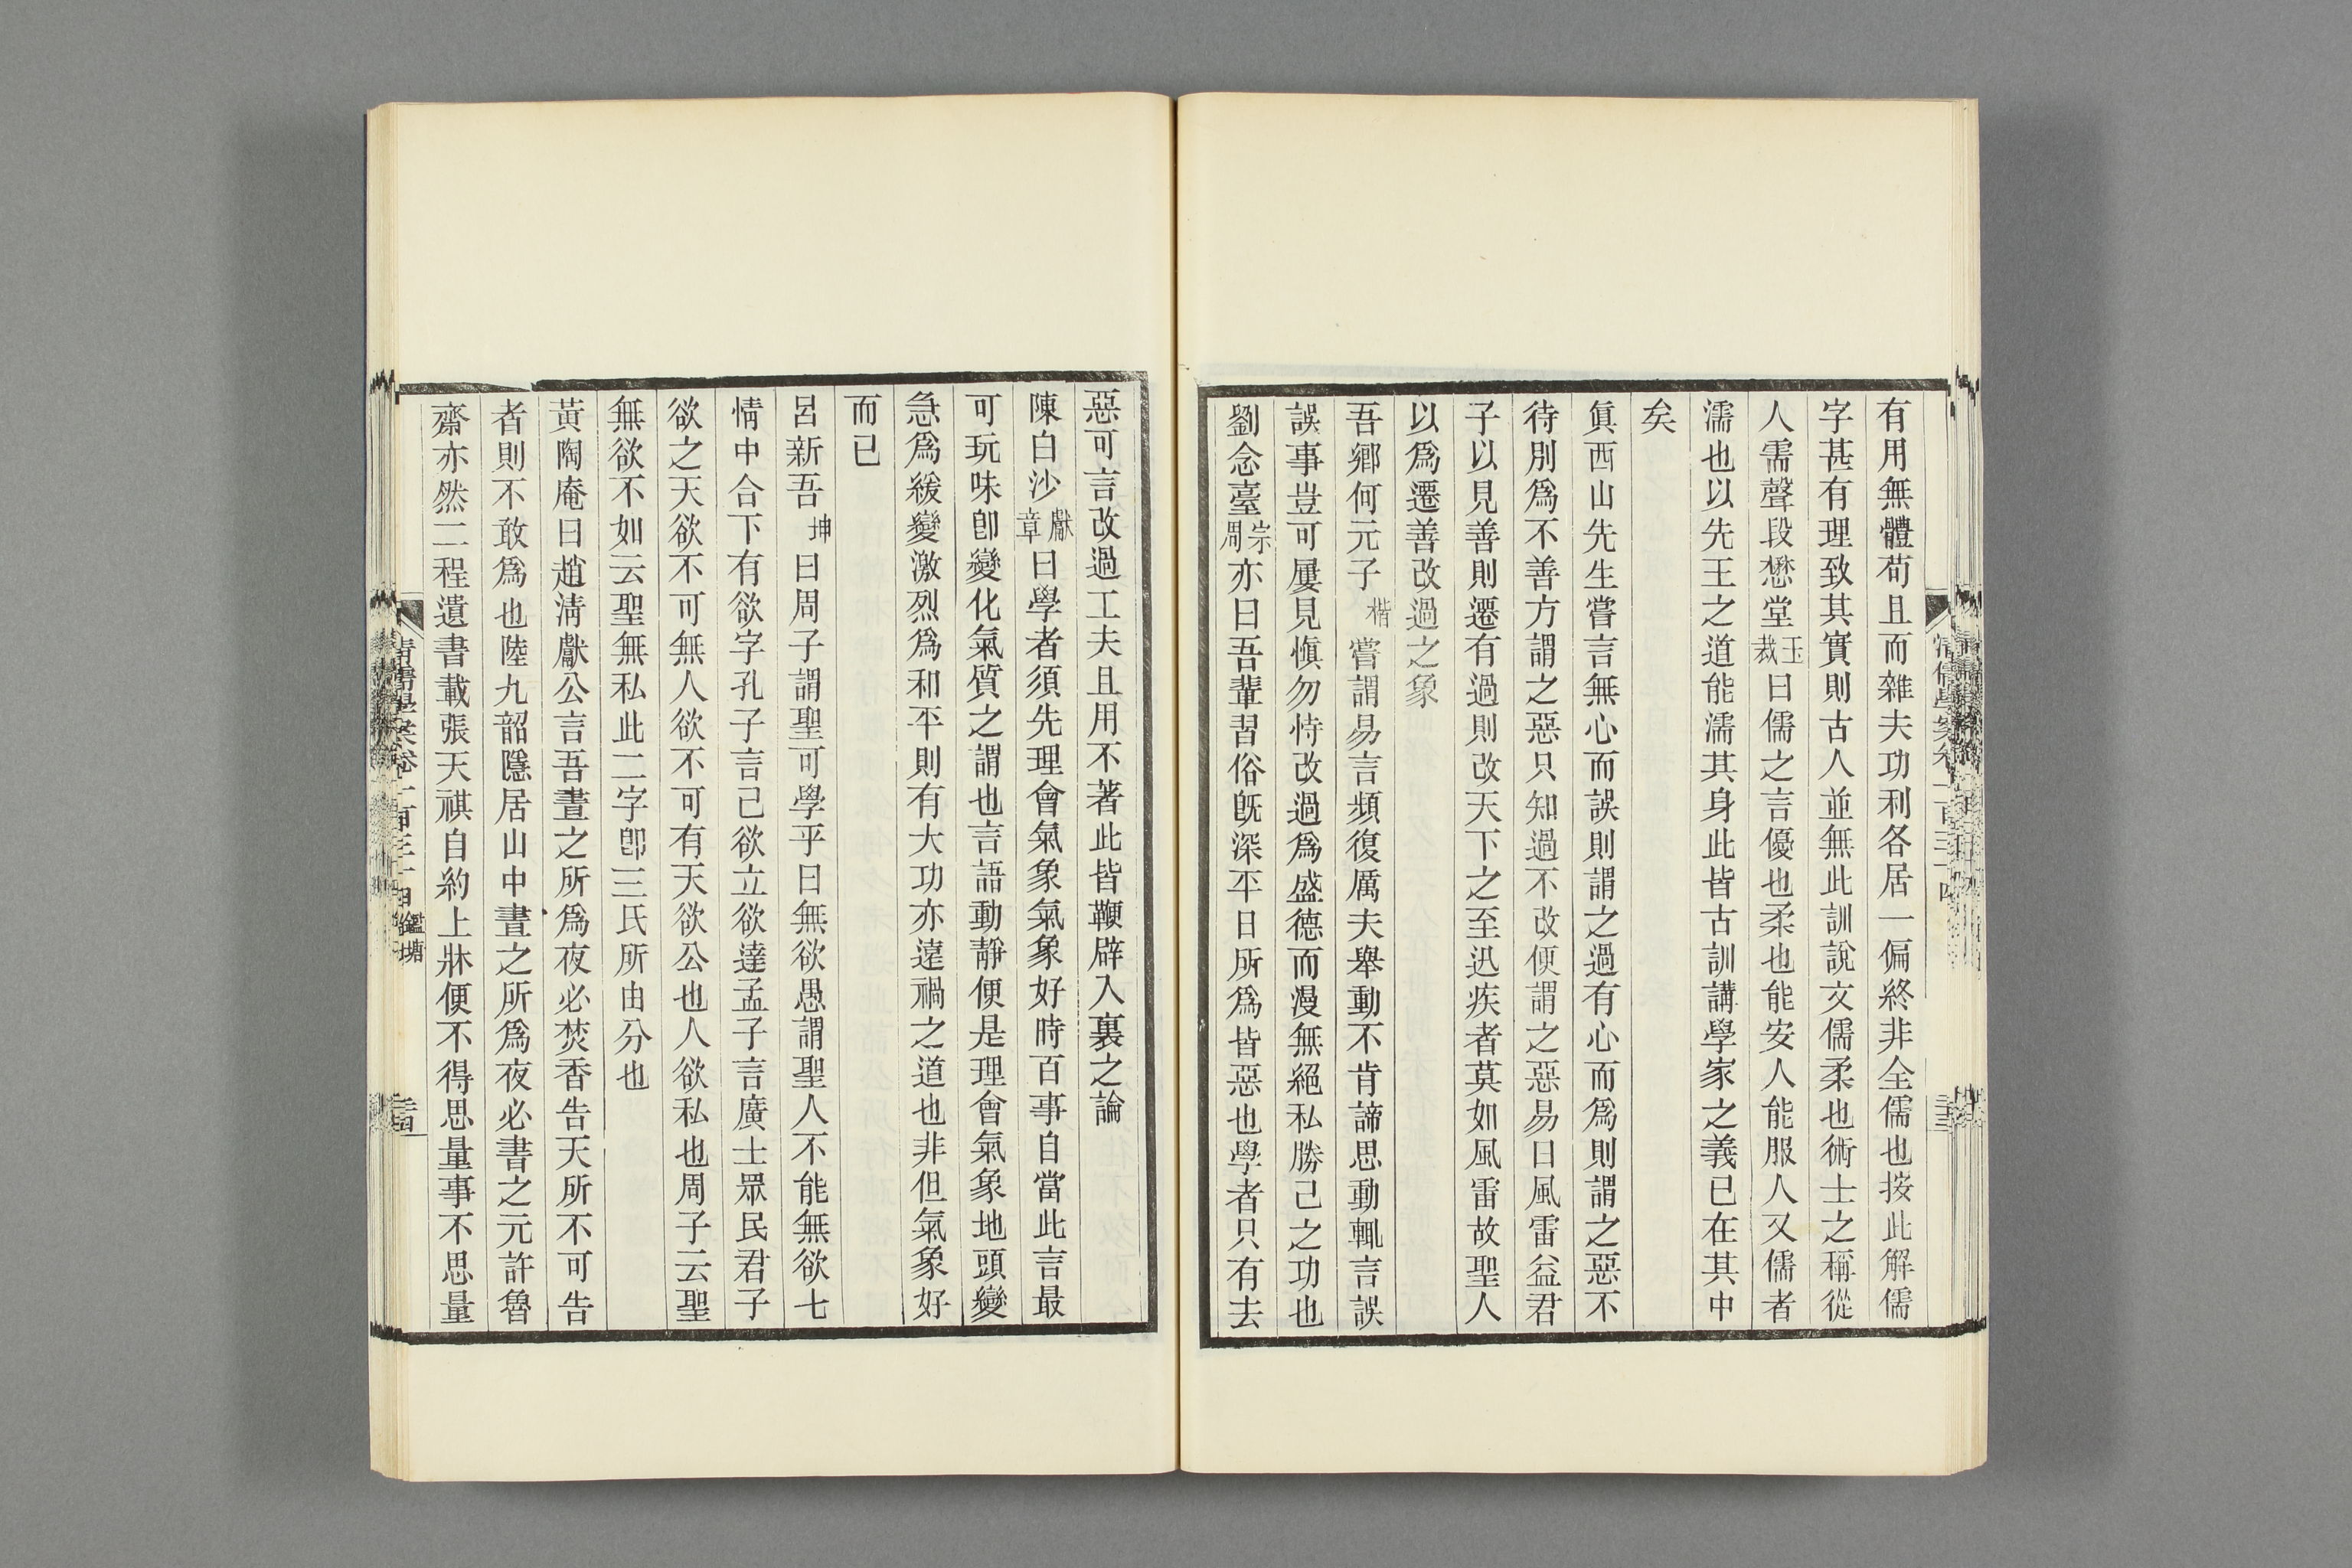 有用無體苟且而雜夫功利各居一偏終非全儒也按此解儒
字甚有理致其實則古人並無此訓說文儒柔也術士之稱從
人需聲段懋堂玉裁曰儒之言優也柔也能安人能服人又儒者
濡也以先王之道能濡其身此皆古訓講學家之義已在其中
矣
眞西山先生嘗言無心而誤則謂之過有心而爲則謂之惡不
待別爲不善方謂之惡只知過不改便謂之惡易曰風雷益君
子以見善則遷有過則改天下之至迅疾者莫如風雷故聖人
以爲遷善改過之象
吾鄉何元子楷嘗謂易言頻復厲夫舉動不肯諦思動輒言誤
誤事豈可屢見愼勿恃改過爲盛德而漫無絕私勝己之功也
劉念臺宗周亦曰吾輩習俗旣深平日所爲皆惡也學者只有去
惡可言改過工夫且用不著此皆鞭辟入裏之論
陳白沙獻章曰學者須先理會氣象氣象好時百事自當此言最
可玩味卽變化氣質之謂也言語動靜便是理會氣象地頭變
急爲緩變激烈爲和平則有大功亦遠禍之道也非但氣象好
而已
呂新吾坤曰周子謂聖可學乎曰無欲愚謂聖人不能無欲七
情中合下有欲字孔子言己欲立欲達孟子言廣士眾民君子
欲之天欲不可無人欲不可有天欲公也人欲私也周子云聖
無欲不如云聖無私此二字卽三氏所由分也
黃陶庵曰趙淸獻公言吾晝之所爲夜必焚香告天所不可告
者則不敢爲也陸九韶隱居山中晝之所爲夜必書之元許魯
齋亦然二程遺書載張天祺自約上牀便不得思量事不思量